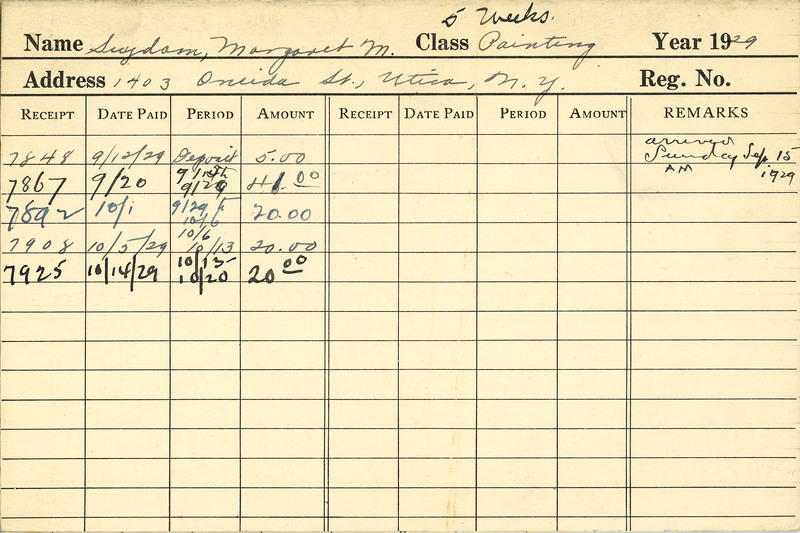 5 Weeks.
Name Suydam, Margaret M. Class Painting Year 1929
Address 1403 Oneida St., Utica, N. Y. Reg. No.
RECEIPT DATE PAID PERIOD AMOUNT RECEIPT DATE PAID PERIOD AMOUNT REMARKS
7848 9/12/29 Deposit 5.00 arrived Sunday Sep. 15 AM 1929
7867 9/20 9/15 9/29 41.00
7892 10/1 9/29 10/6 20.00
7908 10/5/29 10/6 10/13 20.00
7925 10/14/29 10/13 10/20 20.00